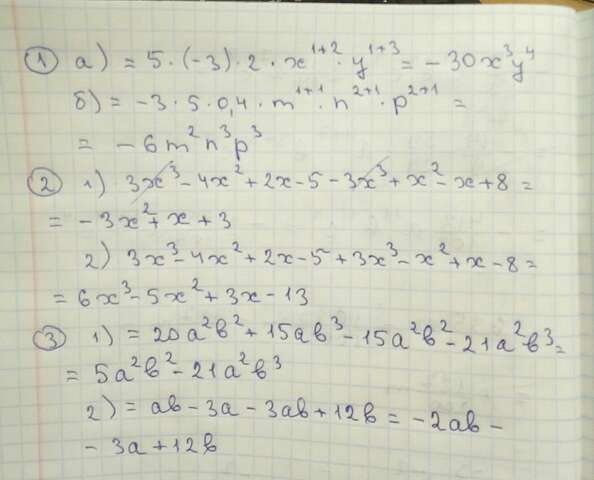 ① а) = 5 · (-3) · 2 · x¹⁺² · y¹⁺³ = -30x³y⁴
б) = -3 · 5 · 0,4 · m¹⁺¹ · n²⁺¹ · p²⁺¹ =
= -6m²n³p³
② 1) 3x³ - 4x² + 2x - 5 - 3x³ + x² - x + 8 =
= -3x² + x + 3
2) 3x³ - 4x² + 2x - 5 + 3x³ - x² + x - 8 =
= 6x³ - 5x² + 3x - 13
③ 1) = 20a²b² + 15ab³ - 15a²b² - 21a²b³ =
= 5a²b² - 21a²b³
2) = ab - 3a - 3ab + 12b = -2ab -
- 3a + 12b